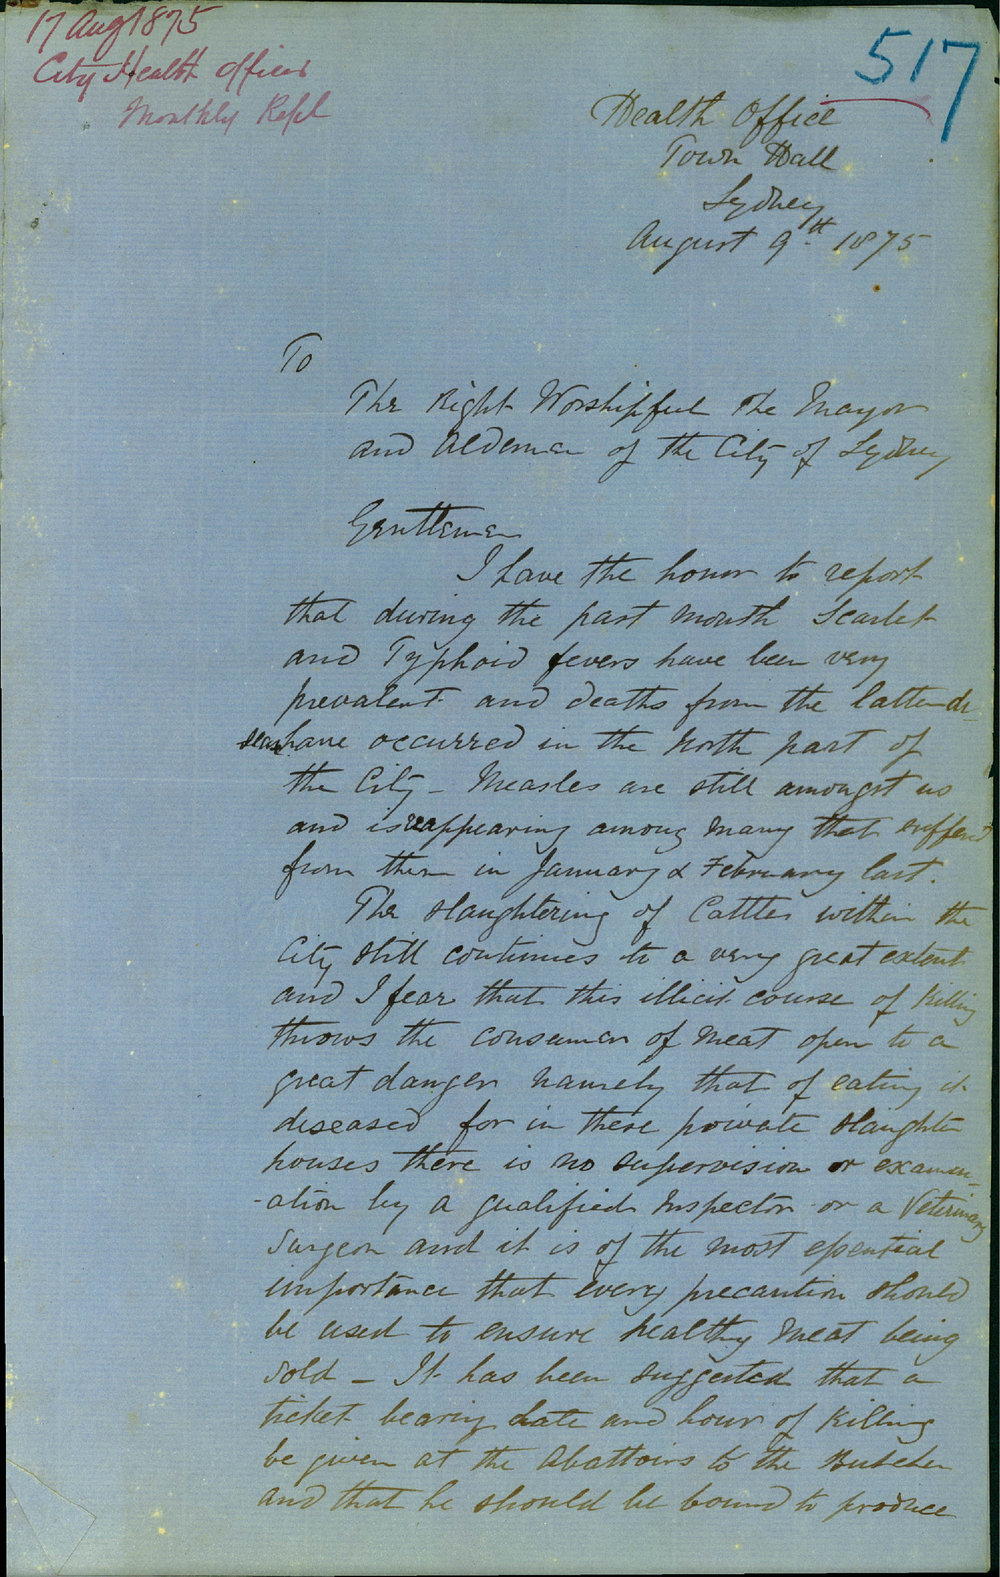 17 Aug 1875
City Health Officer
Monthly Rept
517
Health Office
Town Hall
Sydney
August 9th 1875
To
The Right Worshipful the Mayor
and Aldermen of the City of Sydney
Gentlemen
I have the honor to report
that during the past month Scarlet
and Typhoid fevers have been very
prevalent and deaths from the latter di-
sease have occurred in the North part of
the City - Measles are still amongst us
and is reappearing among many that suffered
from them in January & February last.
The slaughtering of Cattle within the
City still continues to a very great extent
and I fear that this illicit course of killing
throws the consumer of meat open to a
great danger namely that of eating it
diseased for in these private slaughter
houses there is no supervision or examin-
-ation by a qualified Inspector or a Veterinary
Surgeon and it is of the most essential
importance that every precaution should
be used to ensure healthy meat being
sold - It has been suggested that a
ticket bearing date and hour of killing
be given at the Abattoirs to the Butcher
and that he should be bound to produce